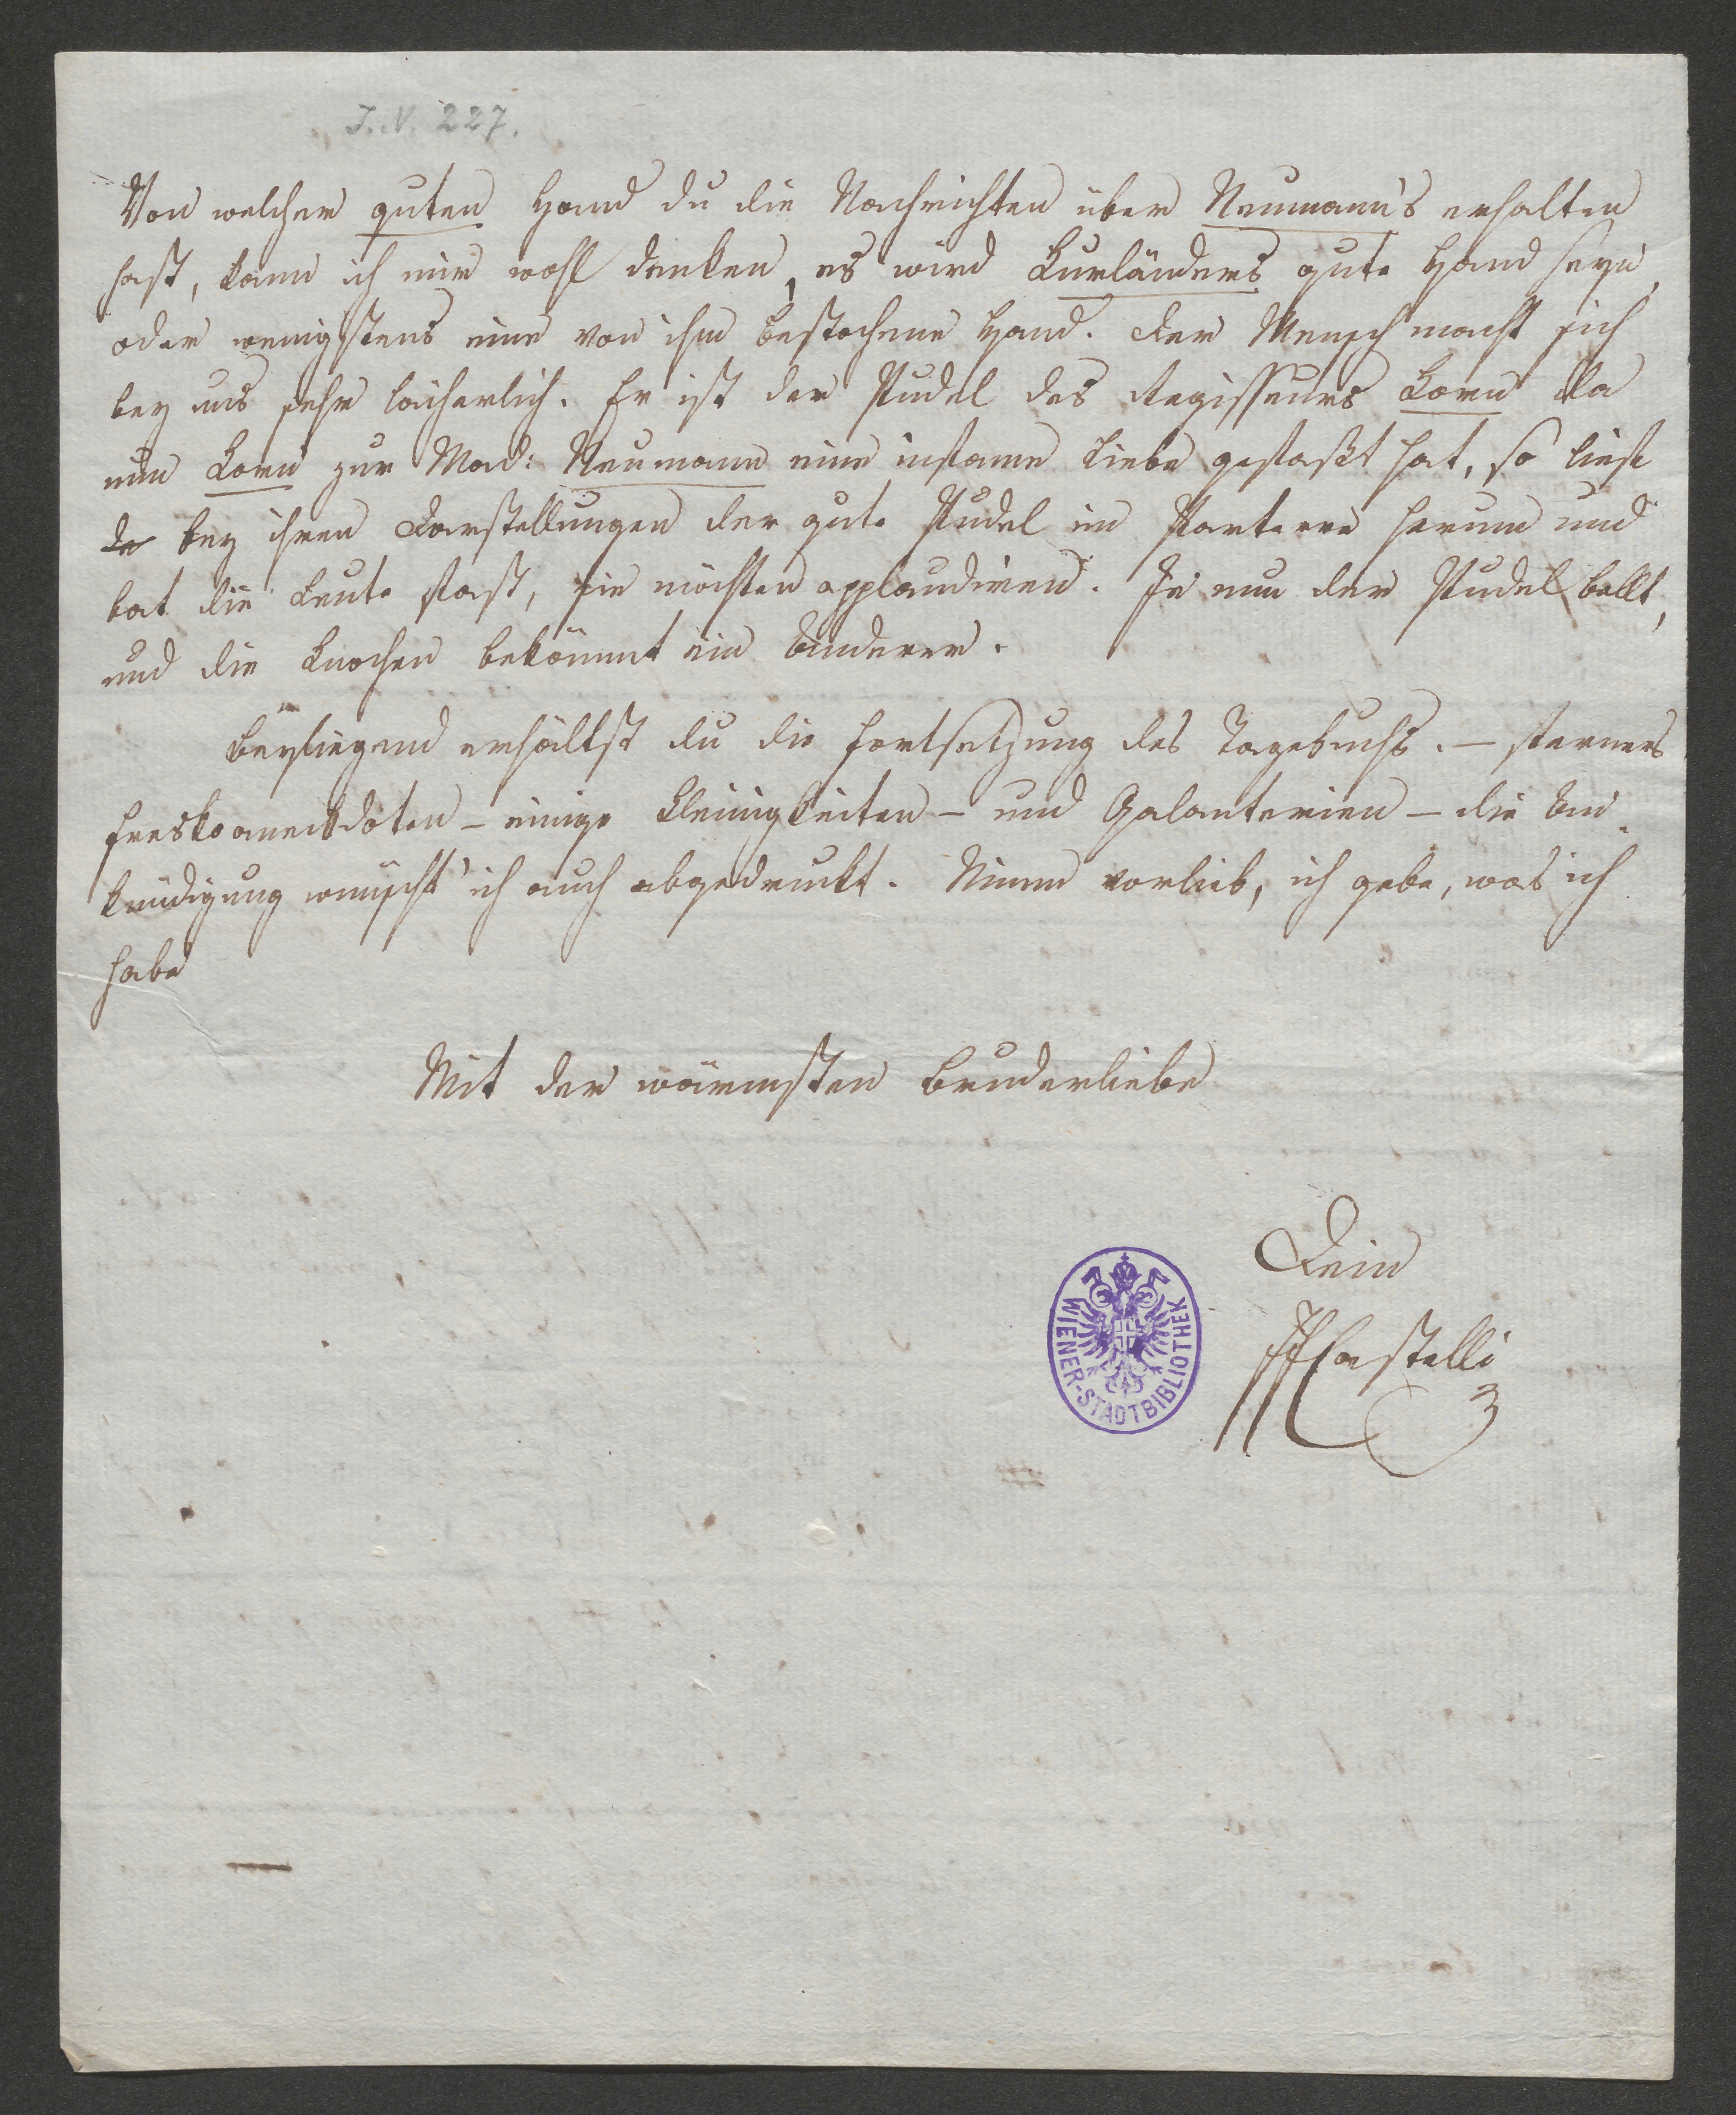 I.N. 227.
Von welcher guten Hand du die Nachrichten über Neumann's erhalten
hast, kann ich mir wohl denken, es wird Kurländers gute Hand seyn,
oder wenigstens eine von ihm bestochene Hand. Der Mensch macht sich
bey uns sehr lächerlich. Er ist der Pudel des Regisseurs Korn da
nun Korn zur Mad: Neumann eine infame Liebe gefaßt hat, so lief
bey ihren Darstellungen der gute Pudel im Parterre herum und
bat die Leute, sie möchten applaudiren. Je nun der Pudel bellt,
und die Knochen bekömmt ein Anderer.
Beyliegend erhältst du die Fortsetzung des Tagebuchs. – ferners
Freskoanekdoten – einige Kleinigkeiten – und Galanterien – die An-
kündigung wünscht' ich auch abgedruckt. Nimm vorlieb, ich gebe, was ich
habe
Mit der wärmsten Bruderliebe
Dein
IFCastelli
WIENER-STADTBIBLIOTHEK